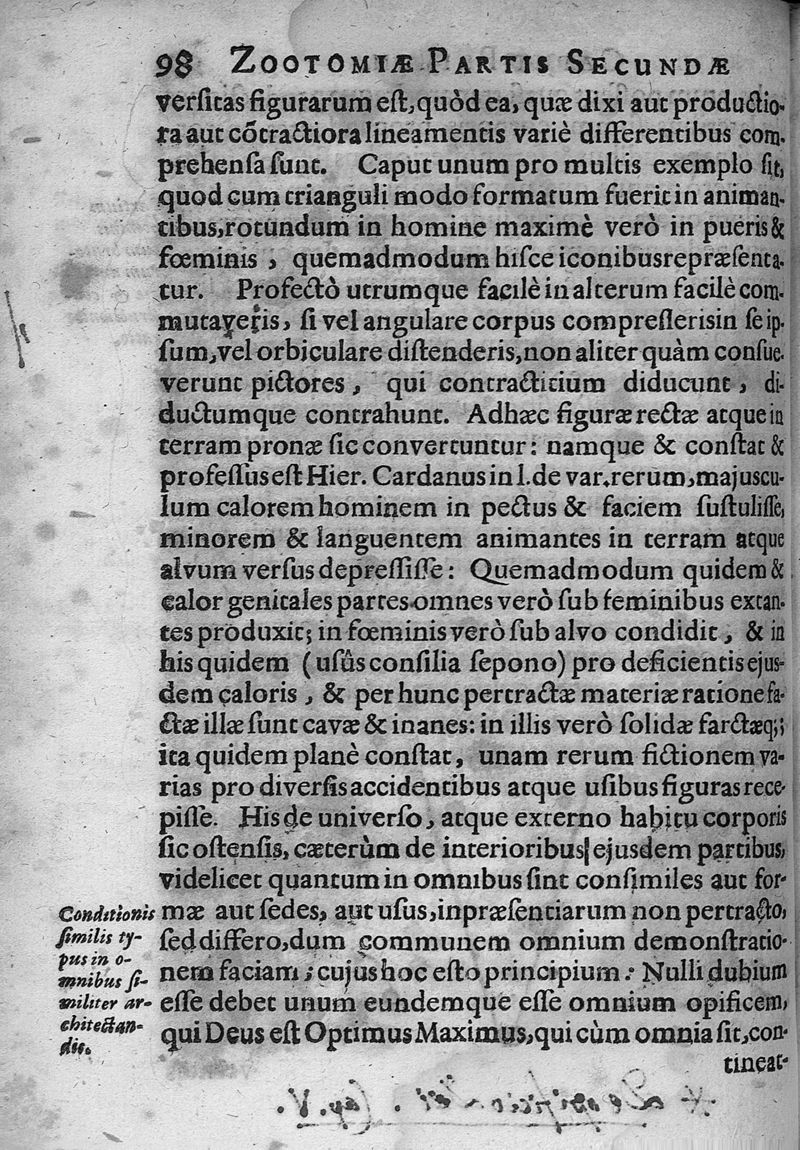 98 ZOOTOMIÆ PARTIS SECUNDÆ
verſitas figurarum eſt, quòd ea, quæ dixi aut productio-
ra aut cõtractiora lineamentis variè differentibus com-
prehenſa ſunt. Caput unum pro multis exemplo ſit,
quod cum trianguli modo formatum fuerit in animan-
tibus, rotundum in homine maximè verò in pueris &
fœminis, quemadmodum hiſce iconibus repræſenta-
tur. Profectò utrumque facilè in alterum facilè com-
mutaveris, ſi vel angulare corpus compreſſeris in ſe ip-
ſum, vel orbiculare diſtenderis, non aliter quàm conſue-
verunt pictores, qui contractitium diducunt, di-
ductumque contrahunt. Adhæc figuræ rectæ atque in
terram pronæ ſic convertuntur: namque & conſtat &
profeſſus eſt Hier. Cardanus in l. de var. rerum, majuscu-
lum calorem hominem in pectus & faciem ſuſtuliſſe,
minorem & languentem animantes in terram atque
alvum verſus depreſſiſſe: Quemadmodum quidem &
calor genitales partes omnes verò ſub feminibus extan-
tes produxit; in fœminis verò ſub alvo condidit, & in
his quidem (uſûs conſilia ſepono) pro deficientis ejus-
dem caloris, & per hunc pertractæ materiæ ratione fa-
ctæ illæ ſunt cavæ & inanes: in illis verò ſolidæ farctæq;;
ita quidem planè conſtat, unam rerum fictionem va-
rias pro diverſis accidentibus atque uſibus figuras rece-
piſſe. His de univerſo, atque externo habitu corporis
ſic oſtenſis, cæterùm de interioribus ejusdem partibus,
videlicet quantum in omnibus ſint conſimiles aut for-
Conditionis
ſimilis ty-
pus in o-
mnibus ſi-
militer ar-
chitectan-
dis.
mæ aut ſedes, aut uſus, inpræſentiarum non pertracto,
ſed differo, dum communem omnium demonſtratio-
nem faciam; cujus hoc eſto principium: Nulli dubium
eſſe debet unum eundemque eſſe omnium opificem,
qui Deus eſt Optimus Maximus, qui cùm omnia ſit, con-
tineat-